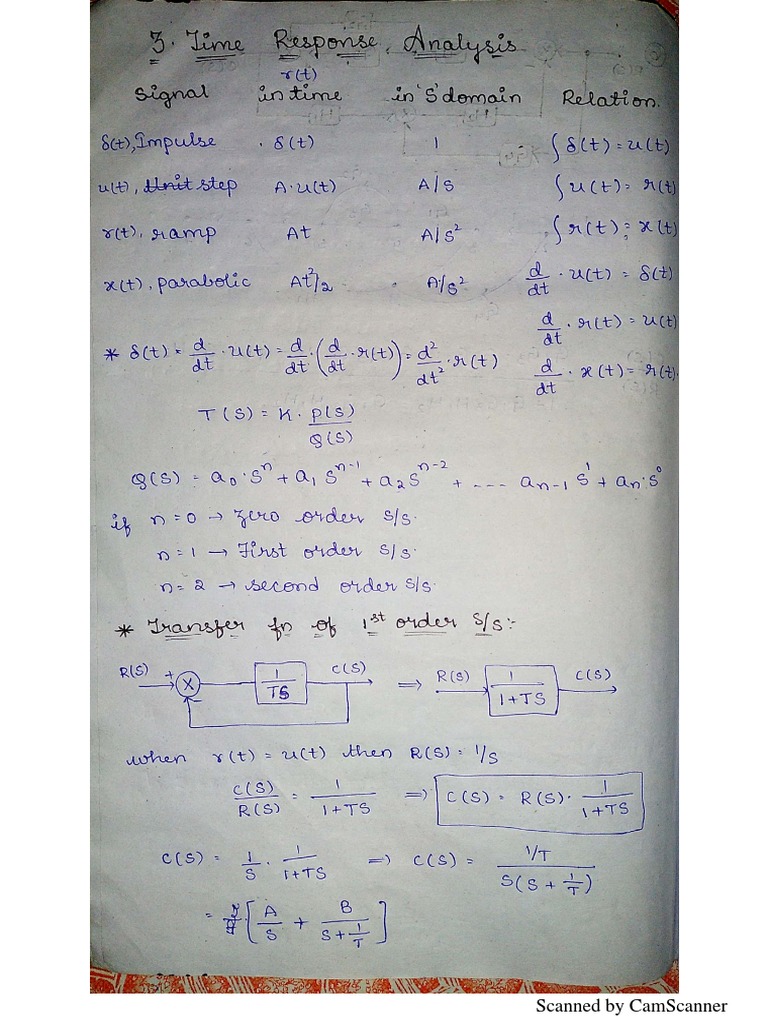 3. Time Response Analysis
r(t)
Signal in time in 'S' domain Relation.
δ(t), Impulse δ(t) 1 ∫δ(t) = u(t)
u(t), Unit step A·u(t) A/S ∫u(t) = r(t)
r(t), ramp At A/S² ∫r(t) = x(t)
x(t), parabolic At²/2 A/S² d/dt · u(t) = δ(t)
d/dt · r(t) = u(t)
* δ(t) = d/dt · u(t) = d/dt · (d/dt · r(t)) = d²/dt² · r(t) d/dt · x(t) = r(t).
T(S) = K · P(S)/Q(S)
Q(S) = a₀·Sⁿ + a₁Sⁿ⁻¹ + a₂Sⁿ⁻² + --- aₙ₋₁S¹ + aₙ·S⁰
if n=0 → zero order S/S.
n=1 → First order S/S.
n=2 → second order S/S.
* Transfer fn of 1st order S/S:-
R(S) + X 1/TS C(S) ⇒ R(S) 1/1+TS C(S)
when r(t) = u(t) then R(S) = 1/S
C(S)/R(S) = 1/1+TS ⇒ C(S) = R(S) · 1/1+TS
C(S) = 1/S · 1/1+TS ⇒ C(S) = 1/T / S(S+1/T)
= [A/S + B/S+1/T]
Scanned by CamScanner